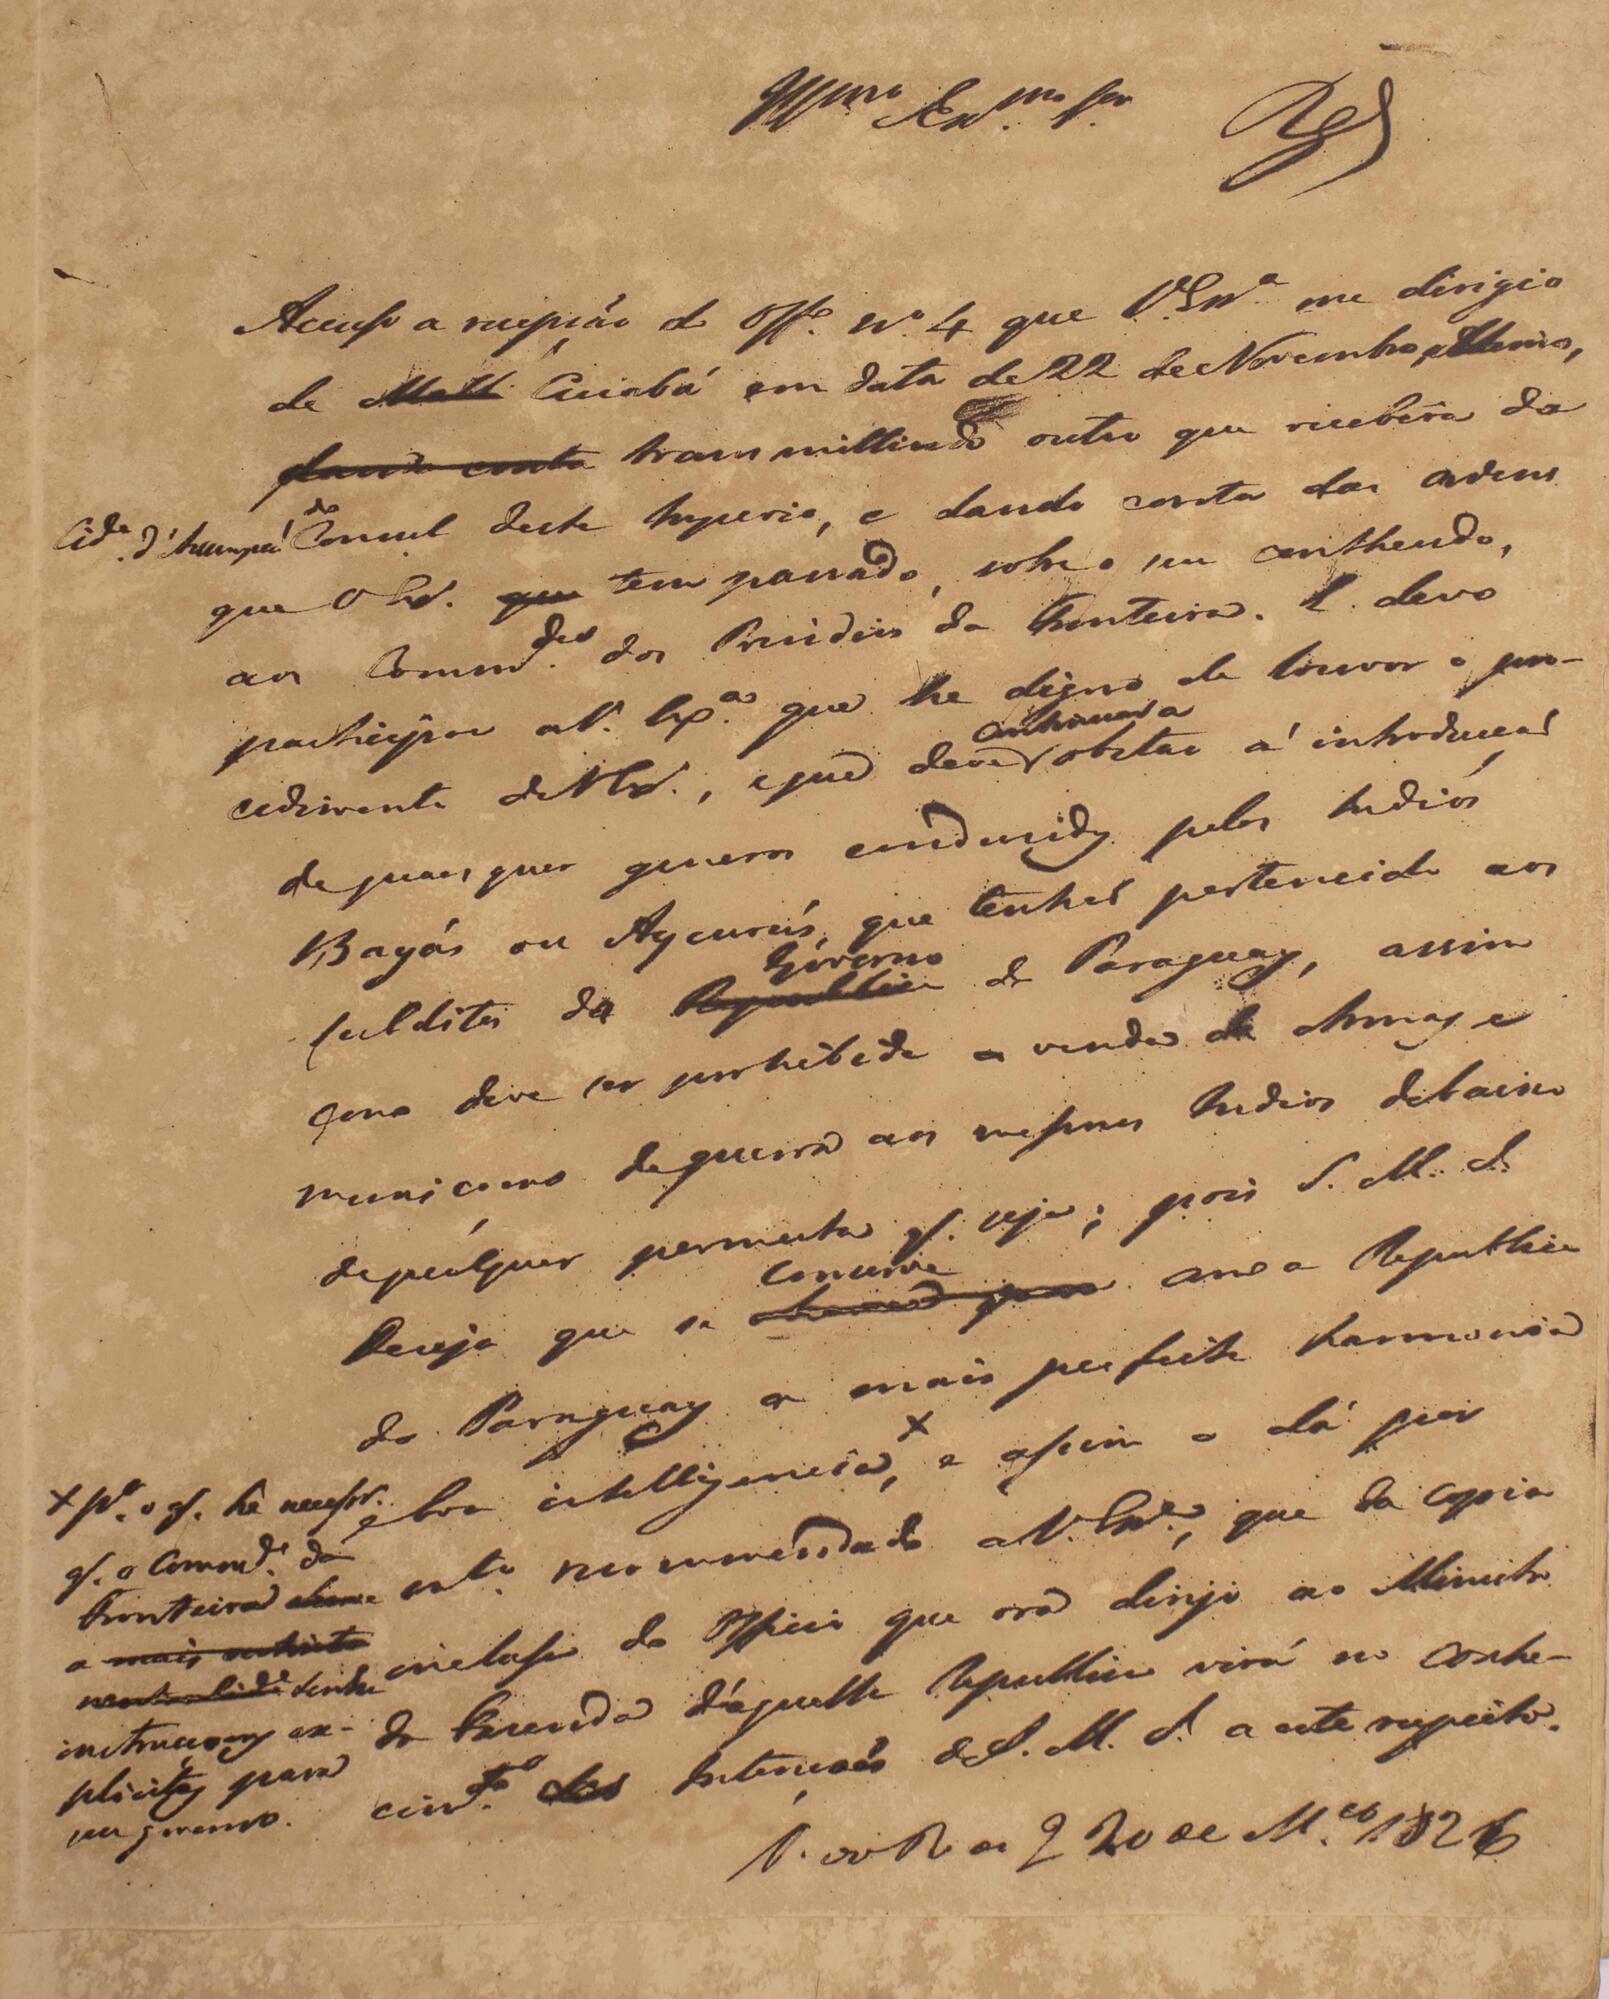 Illmo. Exmo. Sr. Reg
Accuso a recepção do Offo. No. 4 que V. Exa. me dirigio
de Matt Cuiabá em data de 22 de Novembro ultimo,
dando conta transmittindo outro que recebêra da
Cide. d'Assumpção do Consul deste Imperio, e dando conta das ordens
que V. Exa. que tem passado, sobre o seu contheudo,
aos Commdes. dos Presidios da Fronteira. E devo
participar a V. Exa. que he digno de louvor o pro-
cedimento de V. Ex., e que deve continuar a obstar á introducção
de quaesquer generos condusidos pelos Indios
Bayás ou Aycurús, que tenhão pertencido aos
subditos do Republica Governo do Paraguay, assim
como deve ser prohibida a venda de Armas e
municoens de guerra aos mesmos Indios debaixo
de qualquer permuta q. seja; pois S. M. I.
Deseja que se conserve com a Republica
do Paraguay a mais perfeita harmonia
e boa intelligencia, + e assim o dá por
mto. recommendado a V. Exa., que da copia
inclusa do Officio que ora dirijo ao Ministro
de Fazenda d'aquella Republica virá no conhe-
cimto. das Intençoés de S. M. I. a este respeito.
+ pa. o q. he necessr.
q. o Commde. da
Fronteira
a mais restricta
neutralide. tenha
instrucçoes ex-
plicitas para
seu governo.
P. do R. de J. 20 de Mco. 1826